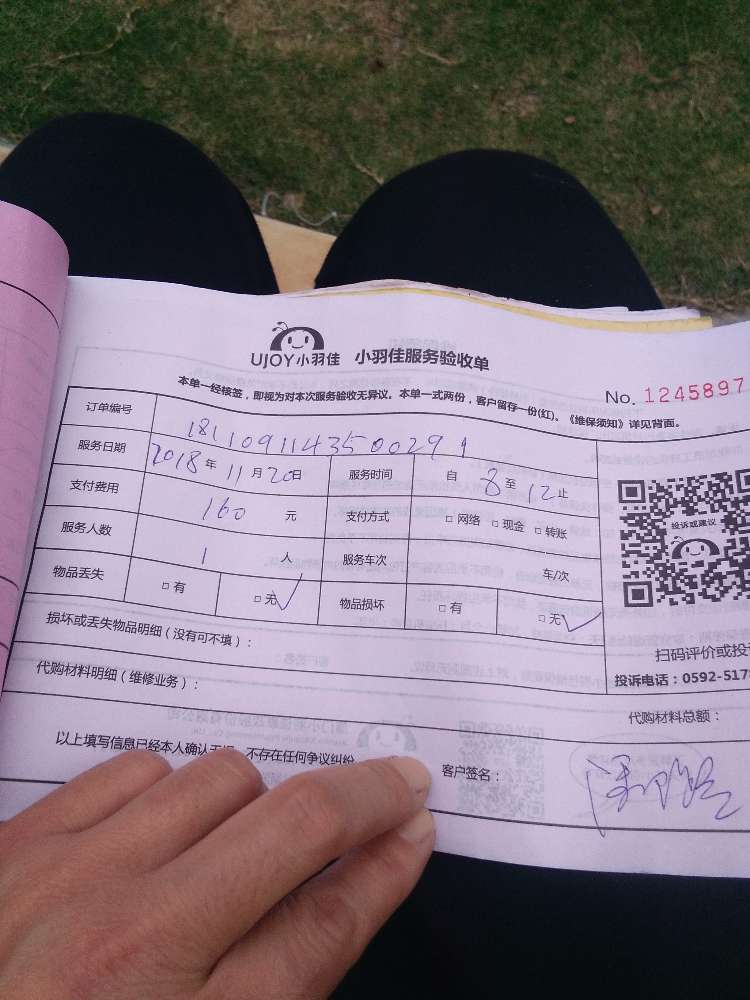 UJOY小羽佳 小羽佳服务验收单
No. 1245897
本单一经核签，即视为对本次服务验收无异议。本单一式两份，客户留存一份(红)。《维保须知》详见背面。
订单编号 1811091143500291
服务日期 2018年11月20日 服务时间 自8至12止
支付费用 160 元 支付方式 □网络 □现金 □转账
服务人数 1 人 服务车次 车/次
物品丢失 □有 □无✓ 物品损坏 □有 □无✓
投诉或建议
扫码评价或投
投诉电话：0592-517
损坏或丢失物品明细（没有可不填）：
代购材料明细（维修业务）： 代购材料总额：
以上填写信息已经本人确认无误，不存在任何争议纠纷 客户签名：